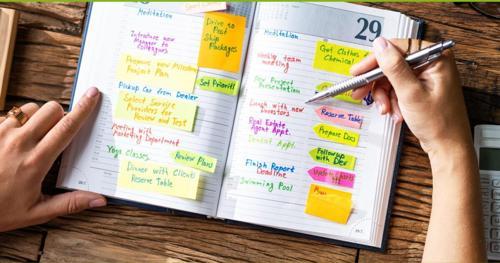 Meditation
Drive to
Post
Ship
Packages
Introduce new
Manager to
Colleagues
Prepare new Milestone
Project Plan
Set Priority
Pickup Car from Dealer
Select Service
Providers for
Review and Test
Meeting with
Marketing Department
Yoga Classes
Review Plans
Dinner with Clients
Reserve Table
29
Meditation
Get Clothes
Chemical
Weekly team
meeting
Presentation
Lunch with new
Investors
Reserve Table
Real Estate
Agent Appt.
Prepare Docs
Dentist Appt.
Followup
with Dev
Finish Report
Deadline
Swimming Pool